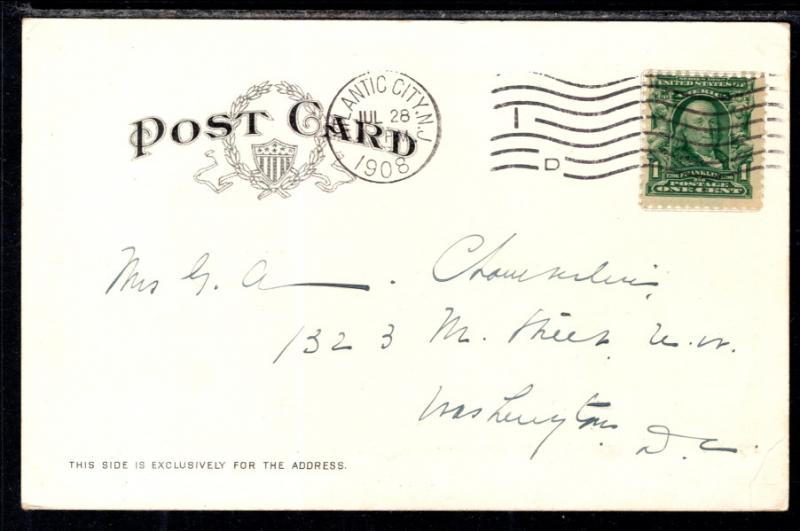 POST CARD
ATLANTIC CITY, N.J.
JUL 28
1908
I
D
UNITED STATES OF
AMERICA
1 FRANKLIN 1
POSTAGE
ONE CENT
Mrs G. A. Chamberlin,
1323 M. Street N.W.
Washington D.C.
THIS SIDE IS EXCLUSIVELY FOR THE ADDRESS.